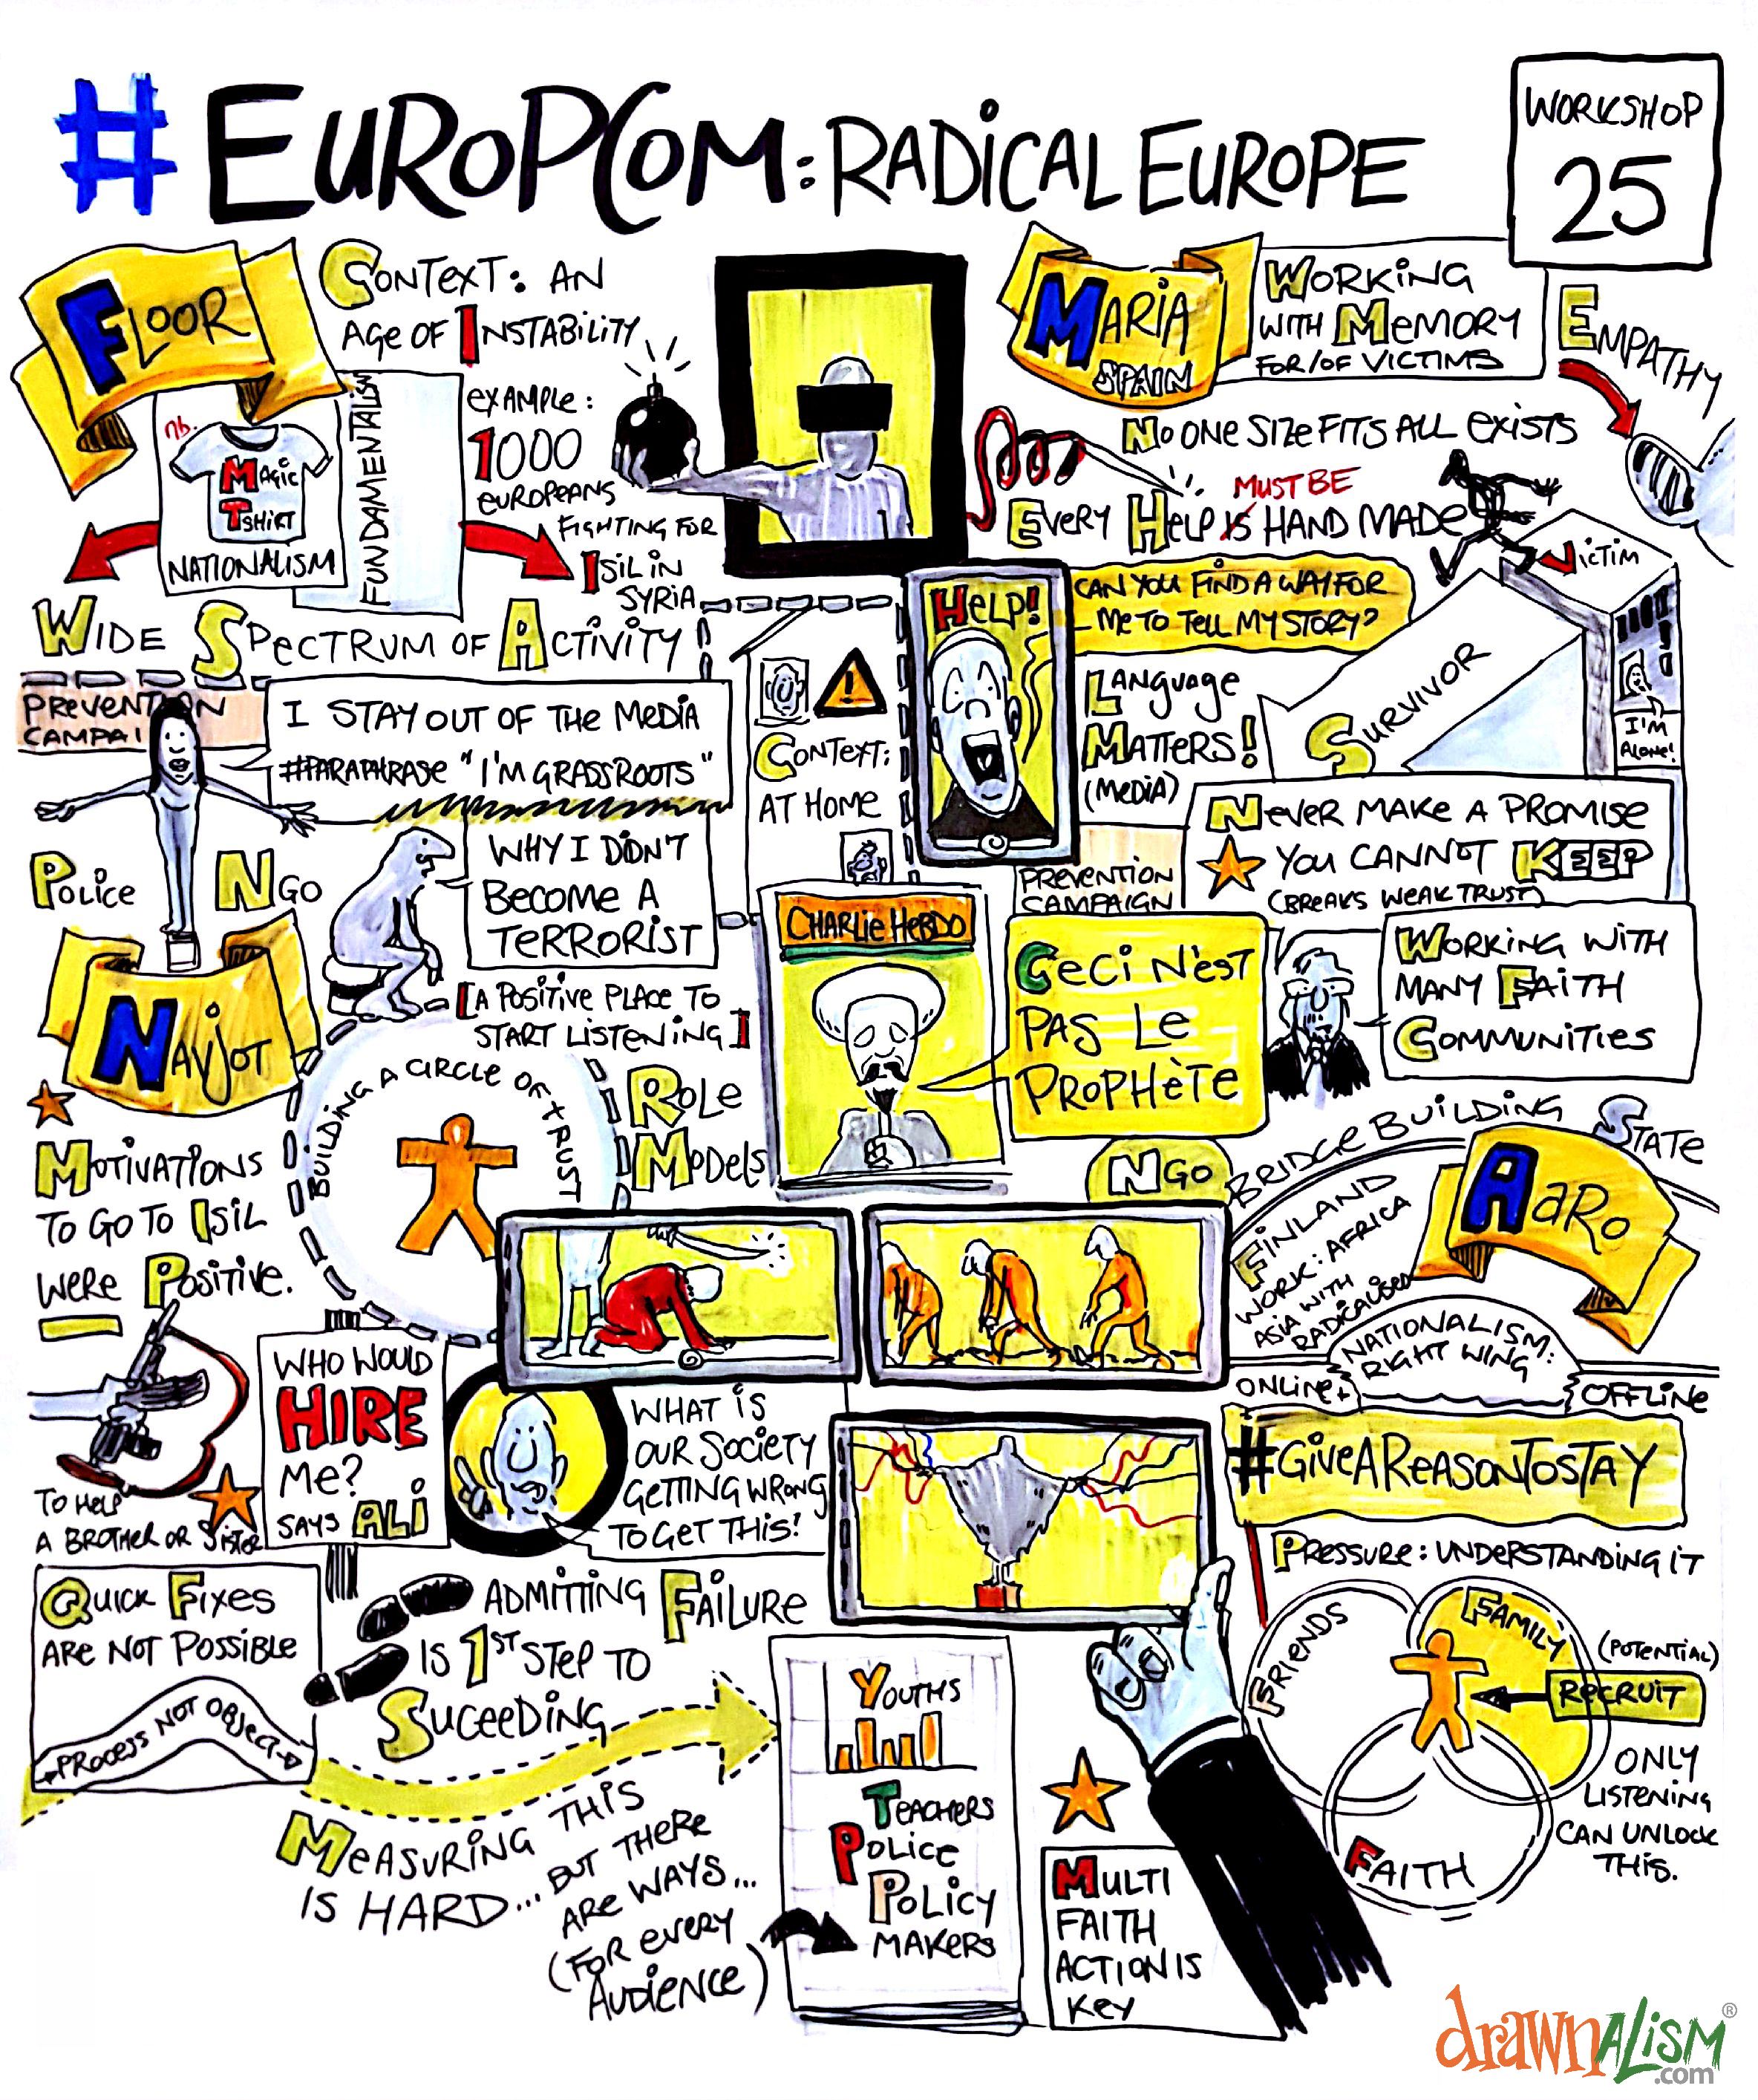 #EuRoPCoM: RADiCAL EuRoPE
WORKSHOP
25
FLOOR
CONTEXT: AN
AGE OF INSTABILITY
EXAMPLE:
1000
EUROPEANS
FIGHTING FOR
ISIL IN
SYRIA
nb.
MAGIC
TSHIRT
NATIONALISM
FUNDAMENTALISM
WIDE SPECTRUM OF ACTIVITY
PREVENTION
CAMPAI
I STAY OUT OF THE MEDIA
#PARAPHRASE "I'M GRASSROOTS"
POLICE
NGO
WHY I DIDN'T
BECOME A
TERRORIST
[A POSITIVE PLACE TO
START LISTENING]
CONTEXT:
AT HOME
MARIA
SPAIN
WORKING
WITH MEMORY
FOR/OF VICTIMS
EMPATHY
NO ONE SIZE FITS ALL EXISTS
MUST BE
EVERY HELP IS HAND MADE
VICTIM
HELP!
CAN YOU FIND A WAY FOR
ME TO TELL MY STORY?
LANGUAGE
MATTERS!
(MEDIA)
SURVIVOR
I'M
ALONE!
PREVENTION
CAMPAIGN
NEVER MAKE A PROMISE
YOU CANNOT KEEP
(BREAKS WEAK TRUST)
CHARLIE HEBDO
CECI N'EST
PAS LE
PROPHÈTE
WORKING WITH
MANY FAITH
COMMUNITIES
NAVJOT
MOTIVATIONS
TO GO TO ISIL
WERE POSITIVE.
TO HELP
A BROTHER OR SISTER
BUILDING A CIRCLE OF TRUST
ROLE
MODELS
WHO WOULD
HIRE
ME?
SAYS ALI
WHAT IS
OUR SOCIETY
GETTING WRONG
TO GET THIS!
NGO
BRIDGE BUILDING
STATE
AARO
FINLAND
WORK: AFRICA
ASIA WITH
RADICALISED
NATIONALISM:
RIGHT WING
ONLINE +
OFFLINE
#GIVEAREASONTOSTAY
PRESSURE: UNDERSTANDING IT
FRIENDS
FAMILY
FAITH
(POTENTIAL)
RECRUIT
ONLY
LISTENING
CAN UNLOCK
THIS.
QUICK FIXES
ARE NOT POSSIBLE
PROCESS NOT OBJECT
ADMITTING FAILURE
IS 1ST STEP TO
SUCEEDING
MEASURING THIS
IS HARD... BUT THERE
ARE WAYS...
(FOR EVERY
AUDIENCE)
YOUTHS
TEACHERS
POLICE
POLICY
MAKERS
MULTI
FAITH
ACTION IS
KEY
drawnALiSM®
.com